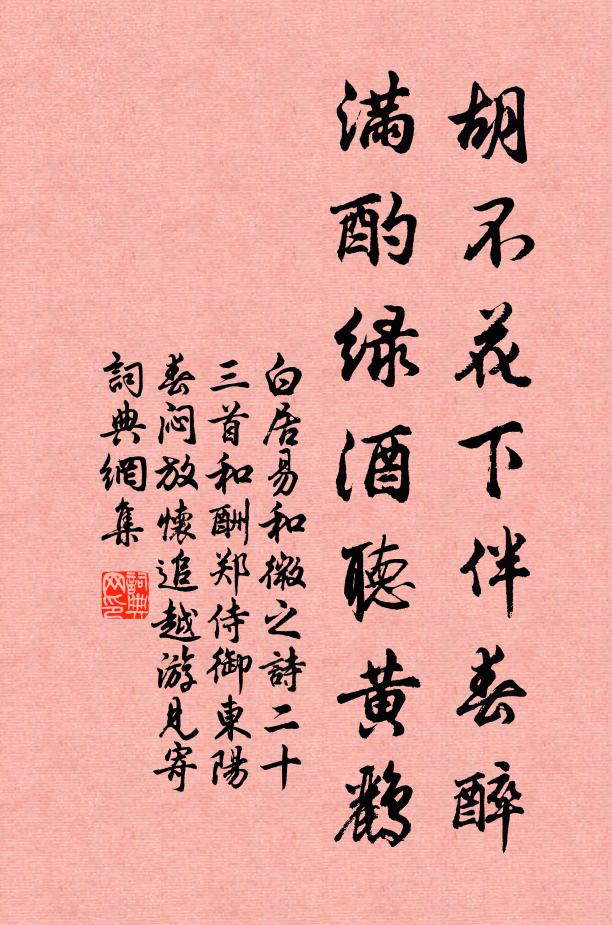 胡不花下伴春醉
满酌绿酒聽黄鸝
白居易和微之詩二十
三首和酬郑侍御東陽
春闷放懷追越游见寄
詞典網集
詞典网印